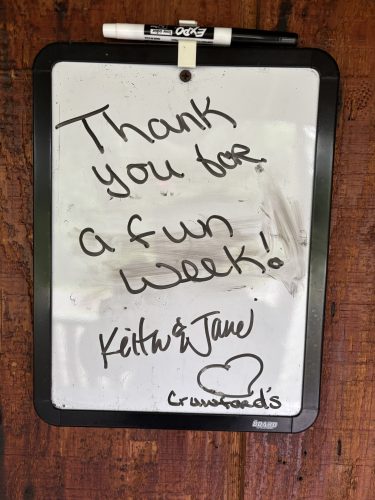 EXPO
Thank
you for
a fun
week!
Keith & Jane
Crawford's